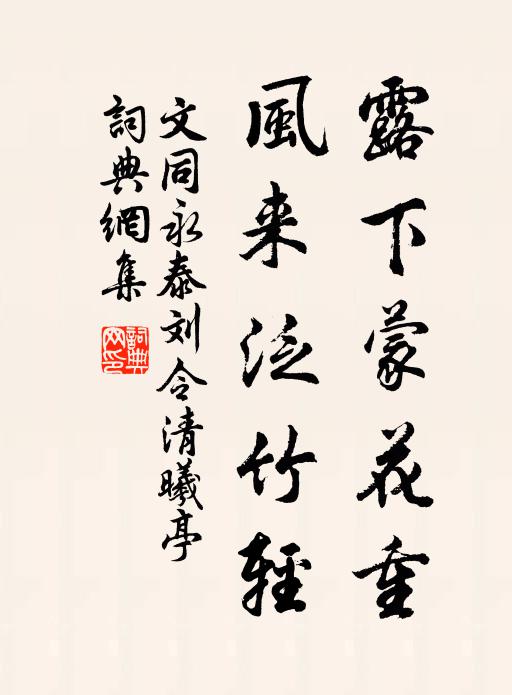 露下蒙花重
風来泛竹輕
文同永泰刘令清曦亭
詞典網集
詞典網印